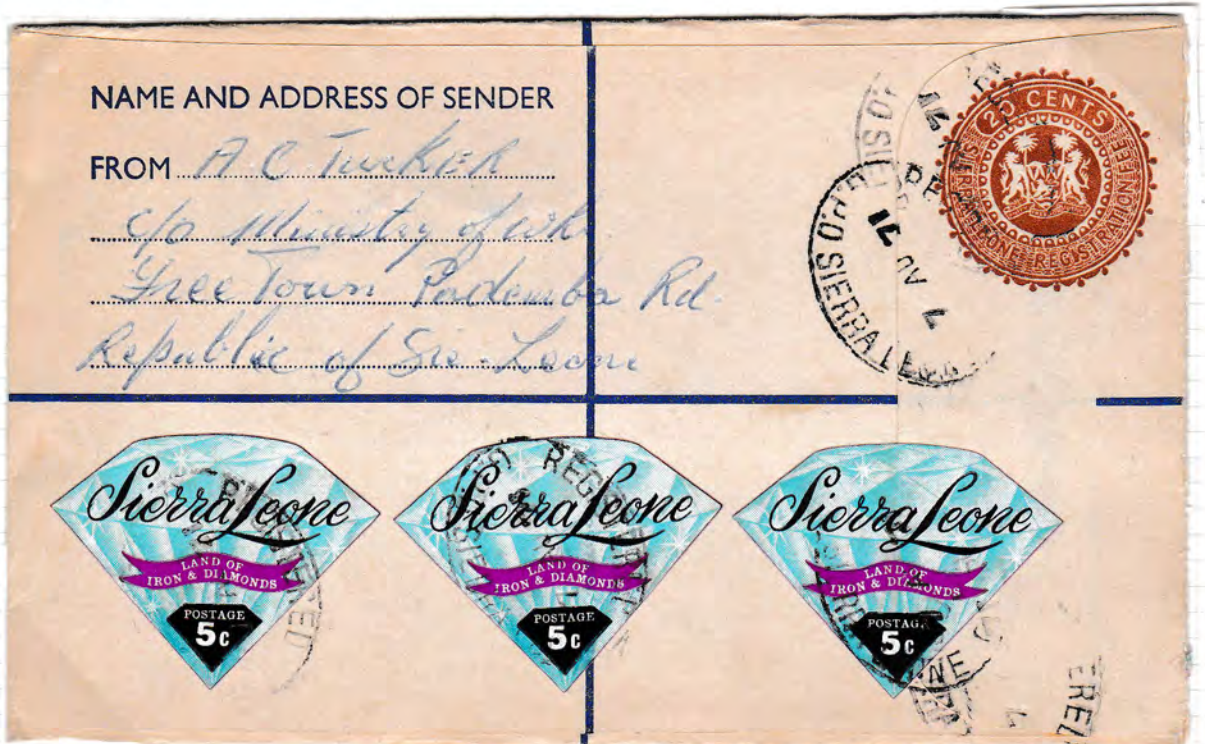 NAME AND ADDRESS OF SENDER
FROM A C Tucker
c/o Ministry of
Free Town Pademba Rd.
Republic of Sie-Leone
20 CENTS
SIERRA LEONE REGISTRATION FEE
G.P.O SIERRA LEONE
Sierra Leone
LAND OF
IRON & DIAMONDS
POSTAGE
5c
Sierra Leone
LAND OF
IRON & DIAMONDS
POSTAGE
5c
Sierra Leone
LAND OF
IRON & DIAMONDS
POSTAGE
5c